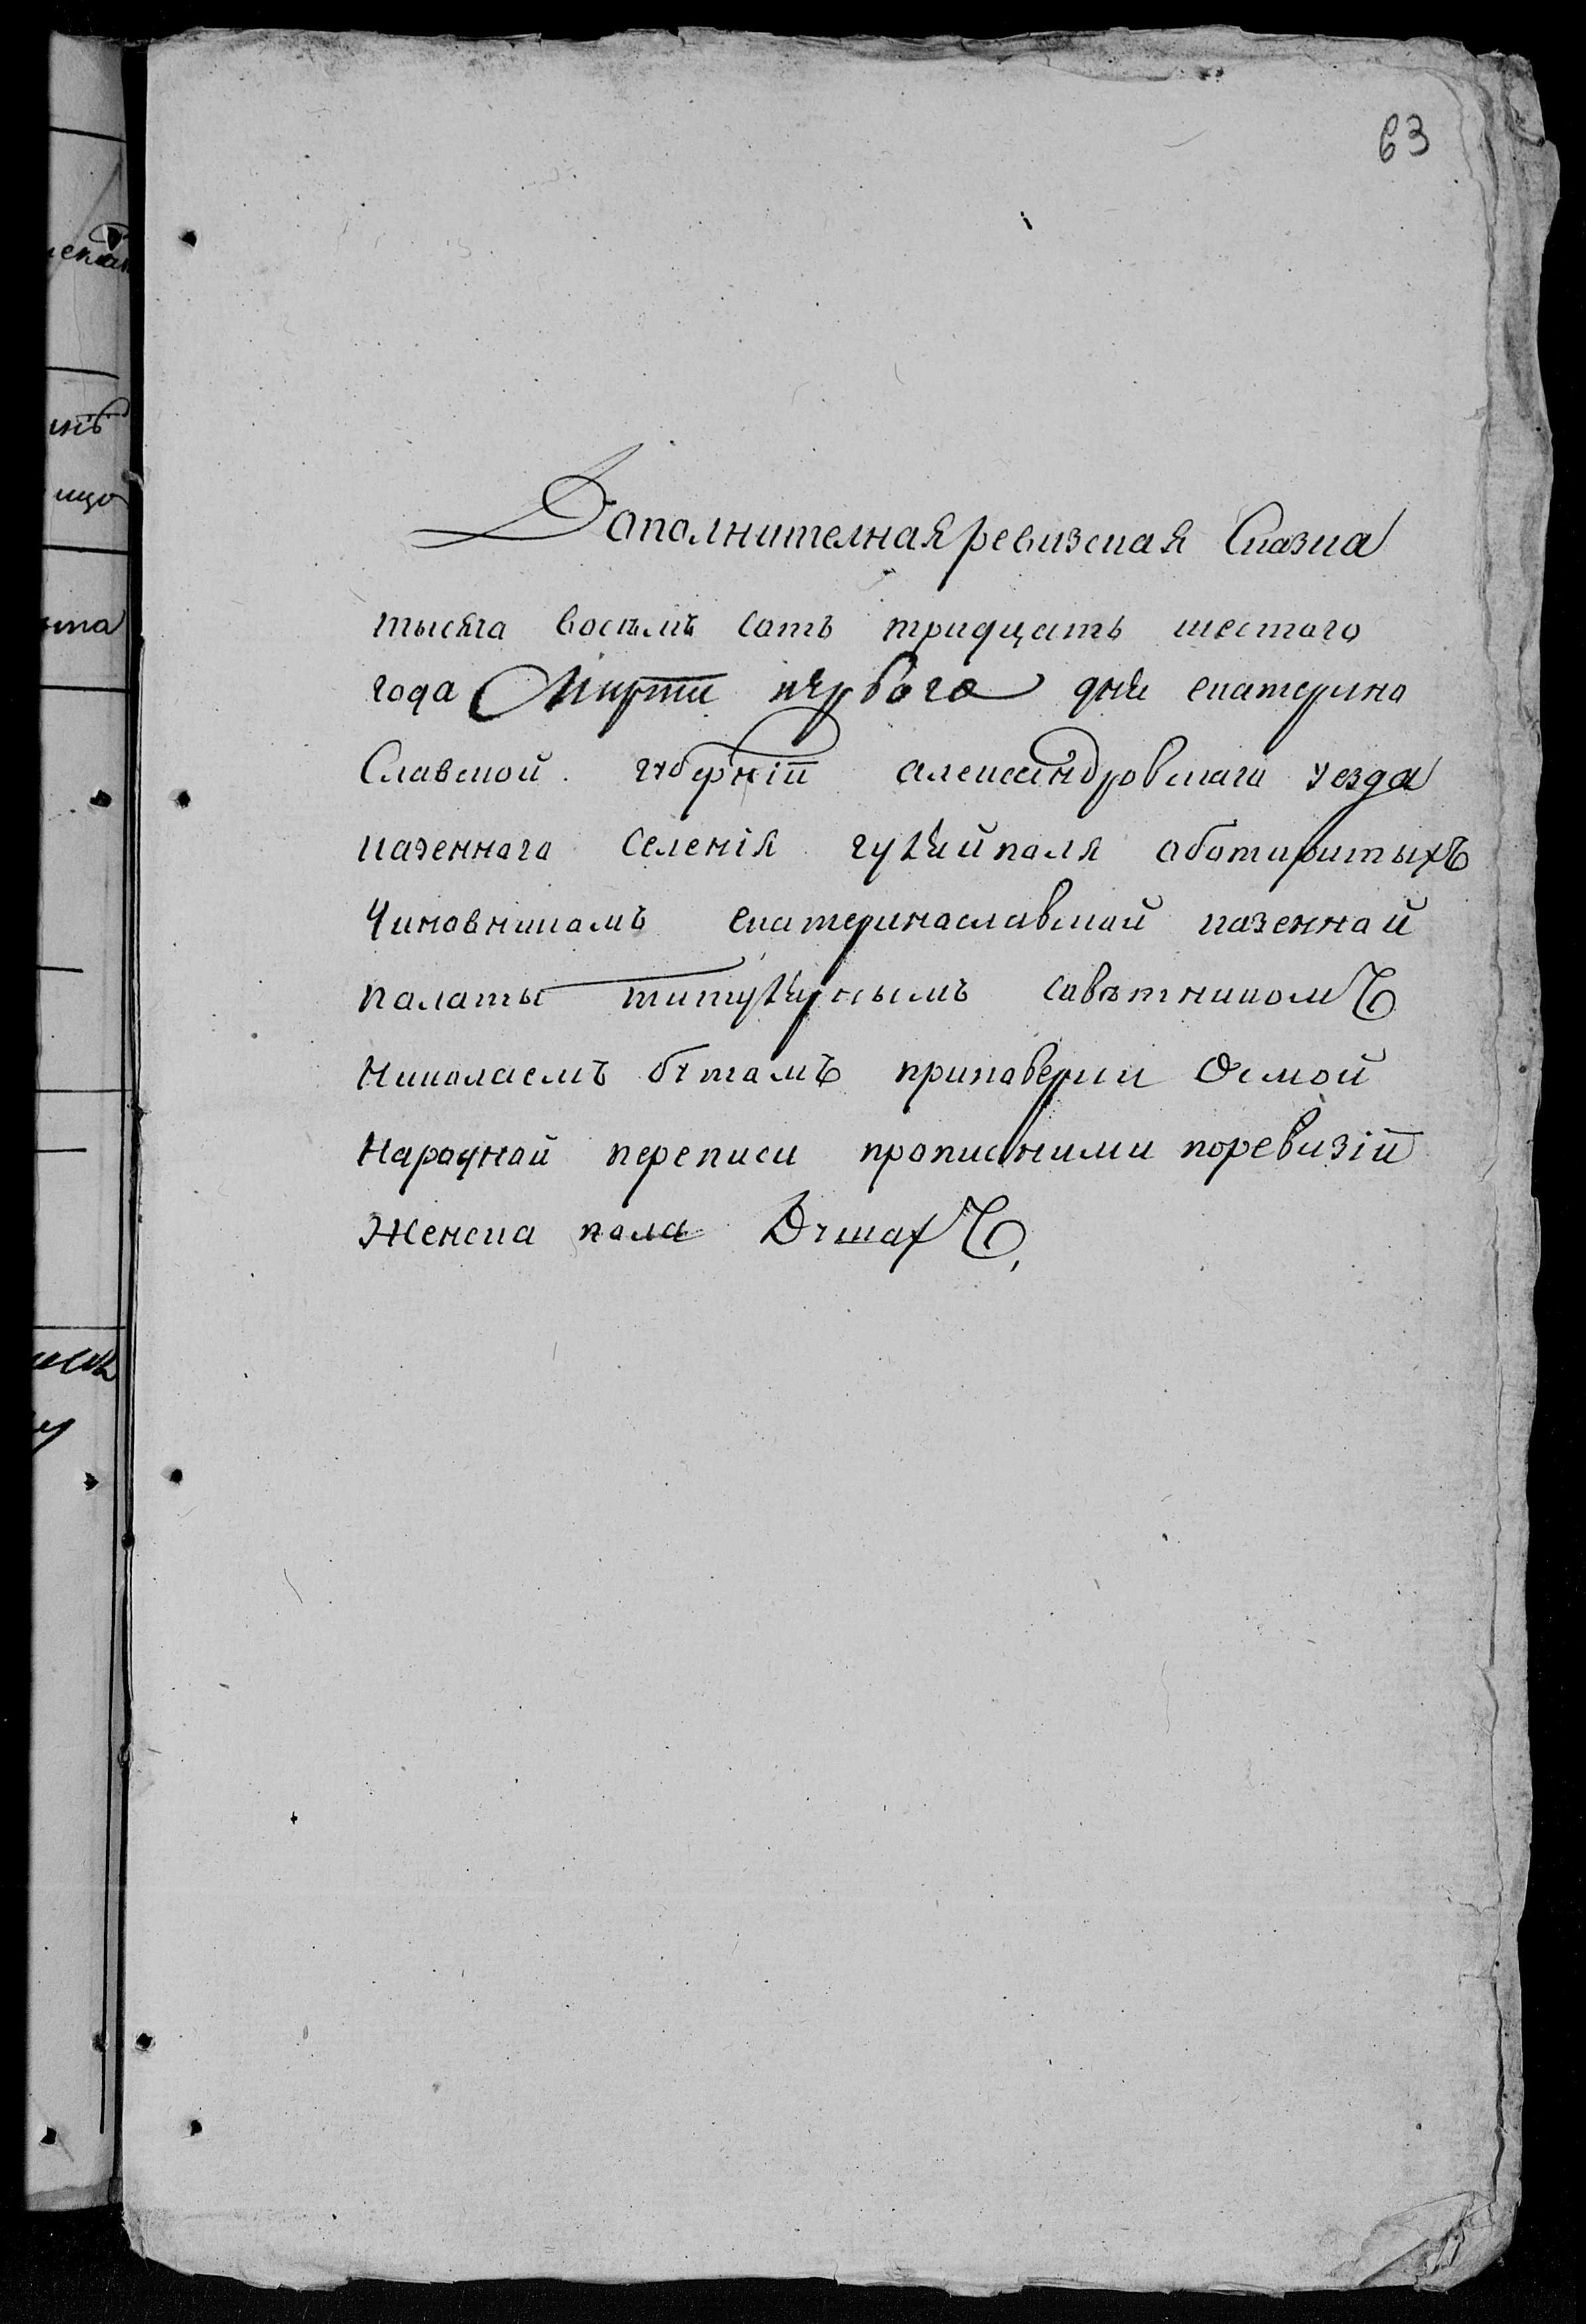 63
Дополнителная ревизская Сказка
тысяча восемъ сотъ тридцать шестого
года Марта первого дня екатерино
Славской губерніи александровскаго уезда
казеннаго селенія гуляйполя
Чиновникомъ екатеринославской казенной
палаты титулярнымъ савѣтникомъ
Николаемъ приповерки Осмой
Народной переписи прописными поревизіи
Женска пола Душахъ,